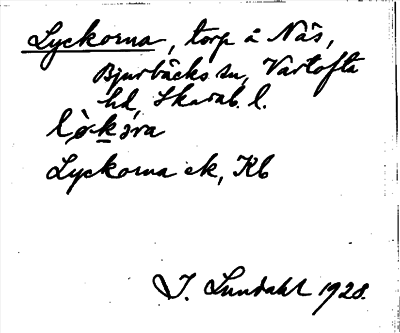 Lyckorna, torp å Näs,
Bjurbäcks sn, Vartofta
hd, Skarab. l.
Lyckorna ek, Kb
I. Lundahl 1928.